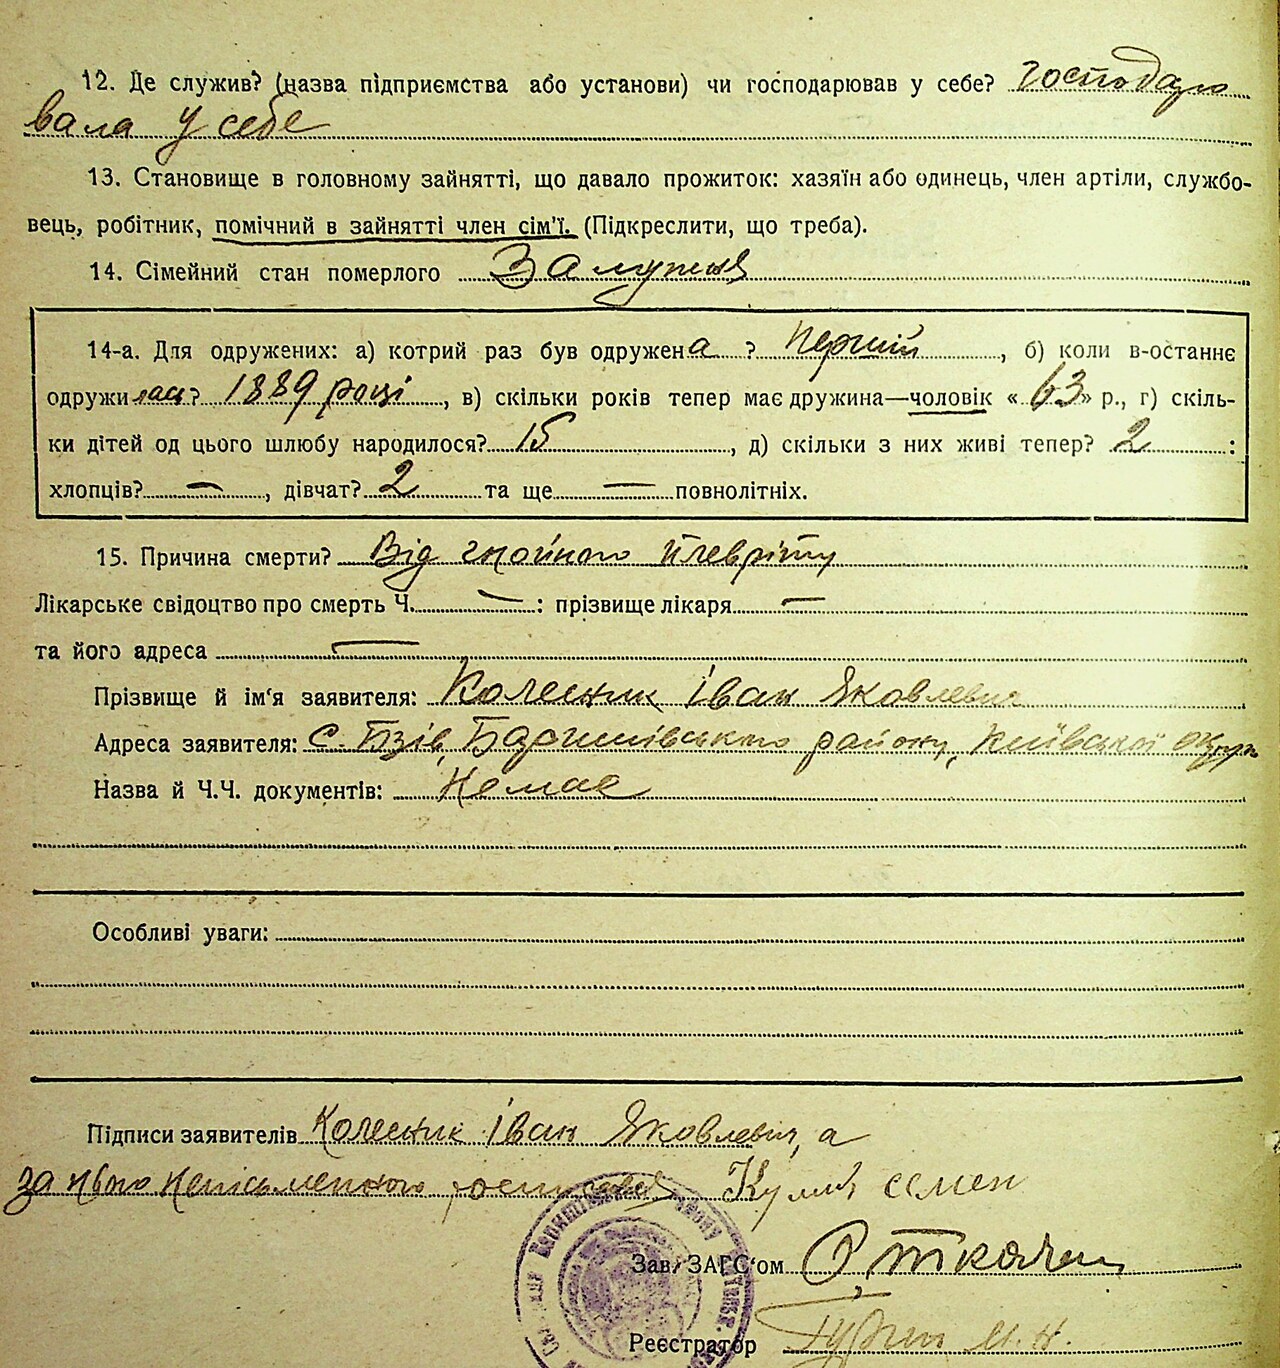 12. Де служив? (назва підприємства або установи) чи господарював у себе? господарю
вала у себе
13. Становище в головному зайнятті, що давало прожиток: хазяїн або одинець, член артіли, службо-
вець, робітник, помічний в зайнятті член сім'ї. (Підкреслити, що треба).
14. Сімейний стан померлого Замужня
14-а. Для одружених: а) котрий раз був одружена ? перший, б) коли в-останнє
одружилась? 1889 році, в) скільки років тепер має дружина—чоловік «63» р., г) скіль-
ки дітей од цього шлюбу народилося? 15, д) скільки з них живі тепер? 2:
хлопців? —, дівчат? 2 та ще — повнолітніх.
15. Причина смерти? Від гнойного плевріту
Лікарське свідоцтво про смерть Ч. —: прізвище лікаря —
та його адреса —
Прізвище й ім'я заявителя: Колесник Іван Яковлевич
Адреса заявителя: С. Бзів, Баришівського району, Київської округи
Назва й Ч.Ч. документів: Немає
Особливі уваги:
Підписи заявителів Колесник Іван Яковлевич, а
за нього неписьменного Семен
Зав. ЗАГС'ом
Реєстратор